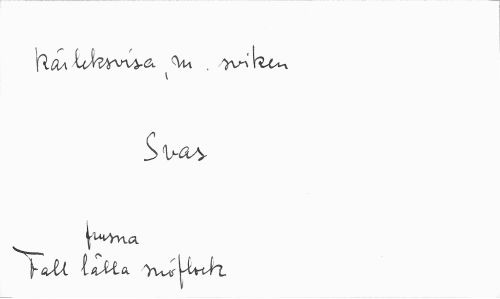 Kärleksvisa, m. sviken
Svas
frusna
Fall lätta snöflock